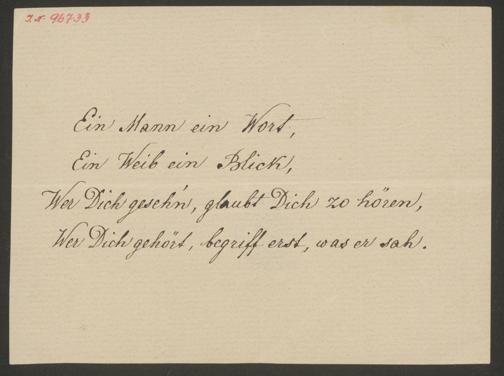 I.N. 96733
Ein Mann ein Wort,
Ein Weib ein Blick,
Wer Dich geseh'n, glaubt Dich zo hören,
Wer Dich gehört, begriff erst, was er sah.